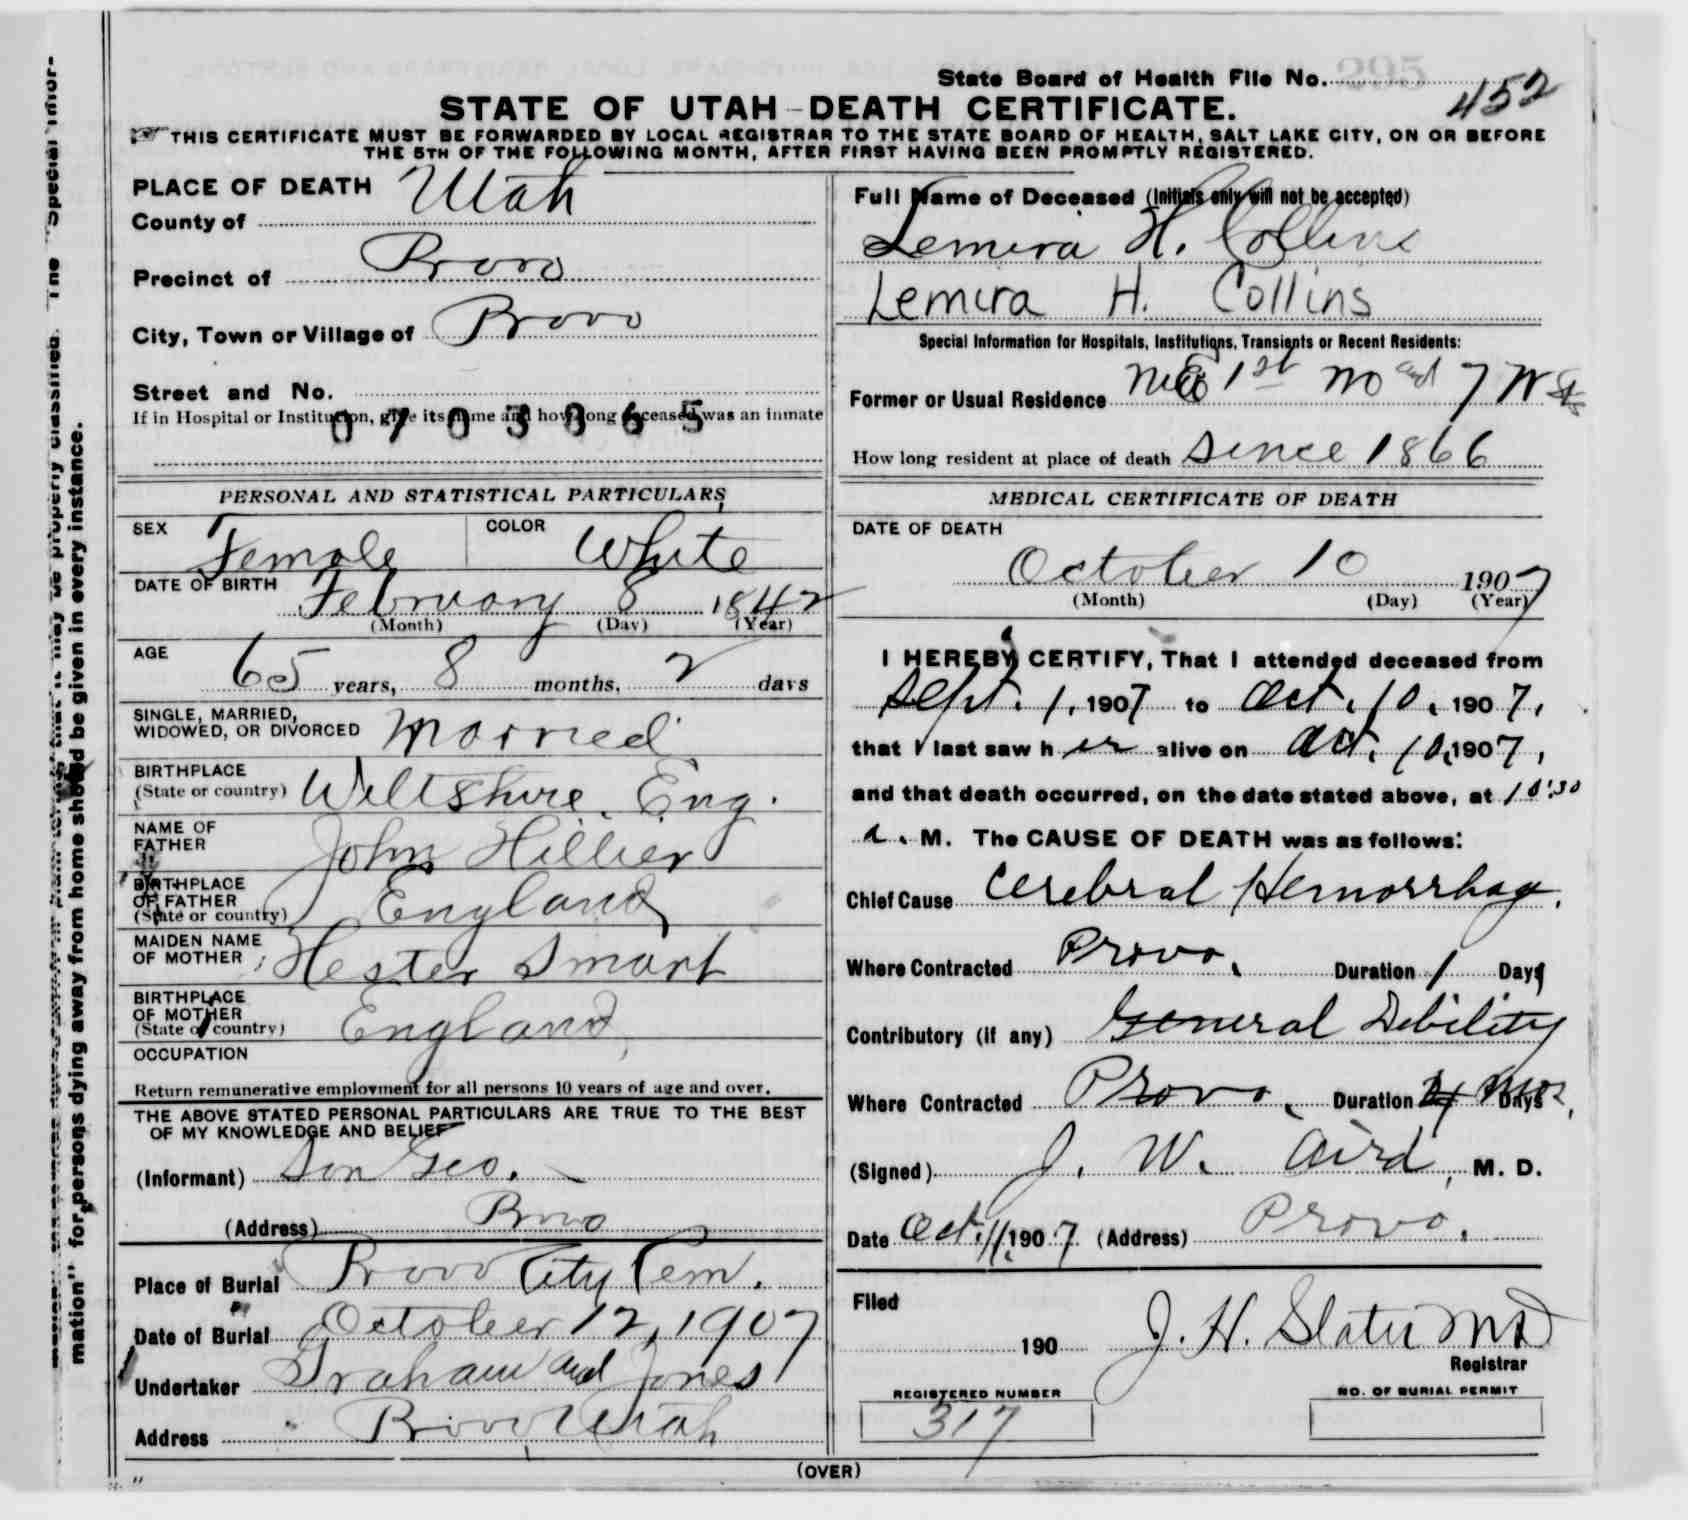 State Board of Health File No. 452
STATE OF UTAH—DEATH CERTIFICATE.
THIS CERTIFICATE MUST BE FORWARDED BY LOCAL REGISTRAR TO THE STATE BOARD OF HEALTH, SALT LAKE CITY, ON OR BEFORE
THE 5TH OF THE FOLLOWING MONTH, AFTER FIRST HAVING BEEN PROMPTLY REGISTERED.
PLACE OF DEATH
County of Utah
Precinct of Provo
City, Town or Village of Provo
Street and No.
If in Hospital or Institution, give its name and how long deceased was an inmate
0703065
PERSONAL AND STATISTICAL PARTICULARS
SEX Female COLOR White
DATE OF BIRTH February 8 1842
(Month) (Day) (Year)
AGE 65 years, 8 months, 2 days
SINGLE, MARRIED,
WIDOWED, OR DIVORCED Married
BIRTHPLACE
(State or country) Wiltshire, Eng.
NAME OF
FATHER John Hillier
BIRTHPLACE
OF FATHER
(State or country) England
MAIDEN NAME
OF MOTHER Hester Smart
BIRTHPLACE
OF MOTHER
(State or country) England
OCCUPATION
Return remunerative employment for all persons 10 years of age and over.
THE ABOVE STATED PERSONAL PARTICULARS ARE TRUE TO THE BEST
OF MY KNOWLEDGE AND BELIEF
(Informant) Son Geo.
(Address) Provo
Place of Burial Provo City Cem.
Date of Burial October 12, 1907
Undertaker Graham and Jones
Address Provo Utah
Full Name of Deceased (Initials only will not be accepted)
Lemira H. Collins
Lemira H. Collins
Special Information for Hospitals, Institutions, Transients or Recent Residents:
Former or Usual Residence 1st No and 7 W Sts
How long resident at place of death Since 1866
MEDICAL CERTIFICATE OF DEATH
DATE OF DEATH
October 10 1907
(Month) (Day) (Year)
I HEREBY CERTIFY, That I attended deceased from
Sept. 1, 1907 to Oct. 10, 1907,
that I last saw her alive on Oct. 10, 1907,
and that death occurred, on the date stated above, at 10:30
a. M. The CAUSE OF DEATH was as follows:
Chief Cause Cerebral Hemorrhag.
Where Contracted Provo. Duration 1 Days
Contributory (if any) General Debility
Where Contracted Provo. Duration Mos. Days
(Signed) J. W. Aird, M. D.
Date Oct. 11, 1907 (Address) Provo.
Filed
190 J. H. Slater MD
Registrar
REGISTERED NUMBER
317
NO. OF BURIAL PERMIT
(OVER)
for persons dying away from home should be given in every instance.